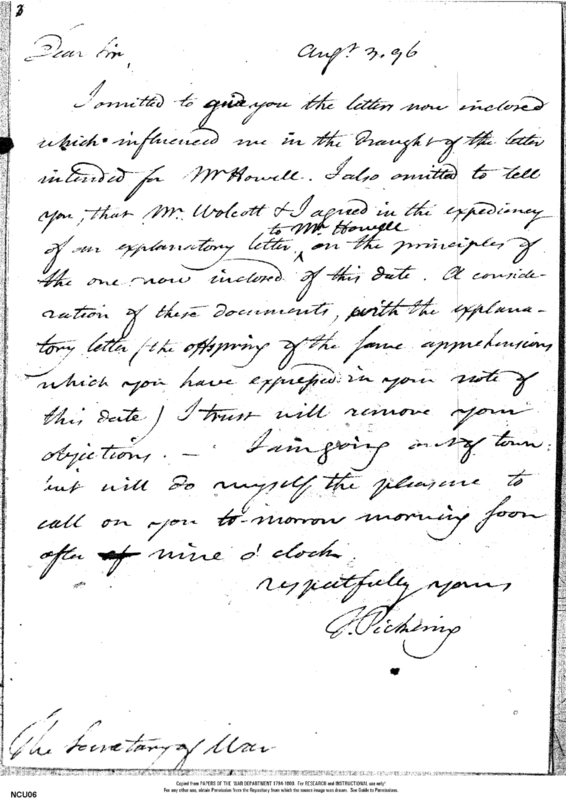 3
Dear Sir, Augt. 3. 96
I omitted to give you the letters now inclosed
which influenced me in the draught of the letter
intended for Mr Howell. I also omitted to tell
you, that Mr. Wolcott & I agreed in the expediency
to Mr. Howell
of an explanatory letter, ^ on the principles of
the one now inclosed of this date. A conside-
ration of these documents, with the explana-
tory letter (the offspring of the same apprehensions
which you have expressed in your note of
this date) I trust will remove your
objections. — I am going out of town:
but will do myself the pleasure to
call on you to-morrow morning soon
after nine o'clock.
respectfully yours
T. Pickering
The Secretary of War
Copied from PAPERS OF THE WAR DEPARTMENT 1784-1800. For RESEARCH and INSTRUCTIONAL use only!
For any other use, obtain Permission from the Repository from which the source-image was drawn. See Guide to Permissions.
NCU06